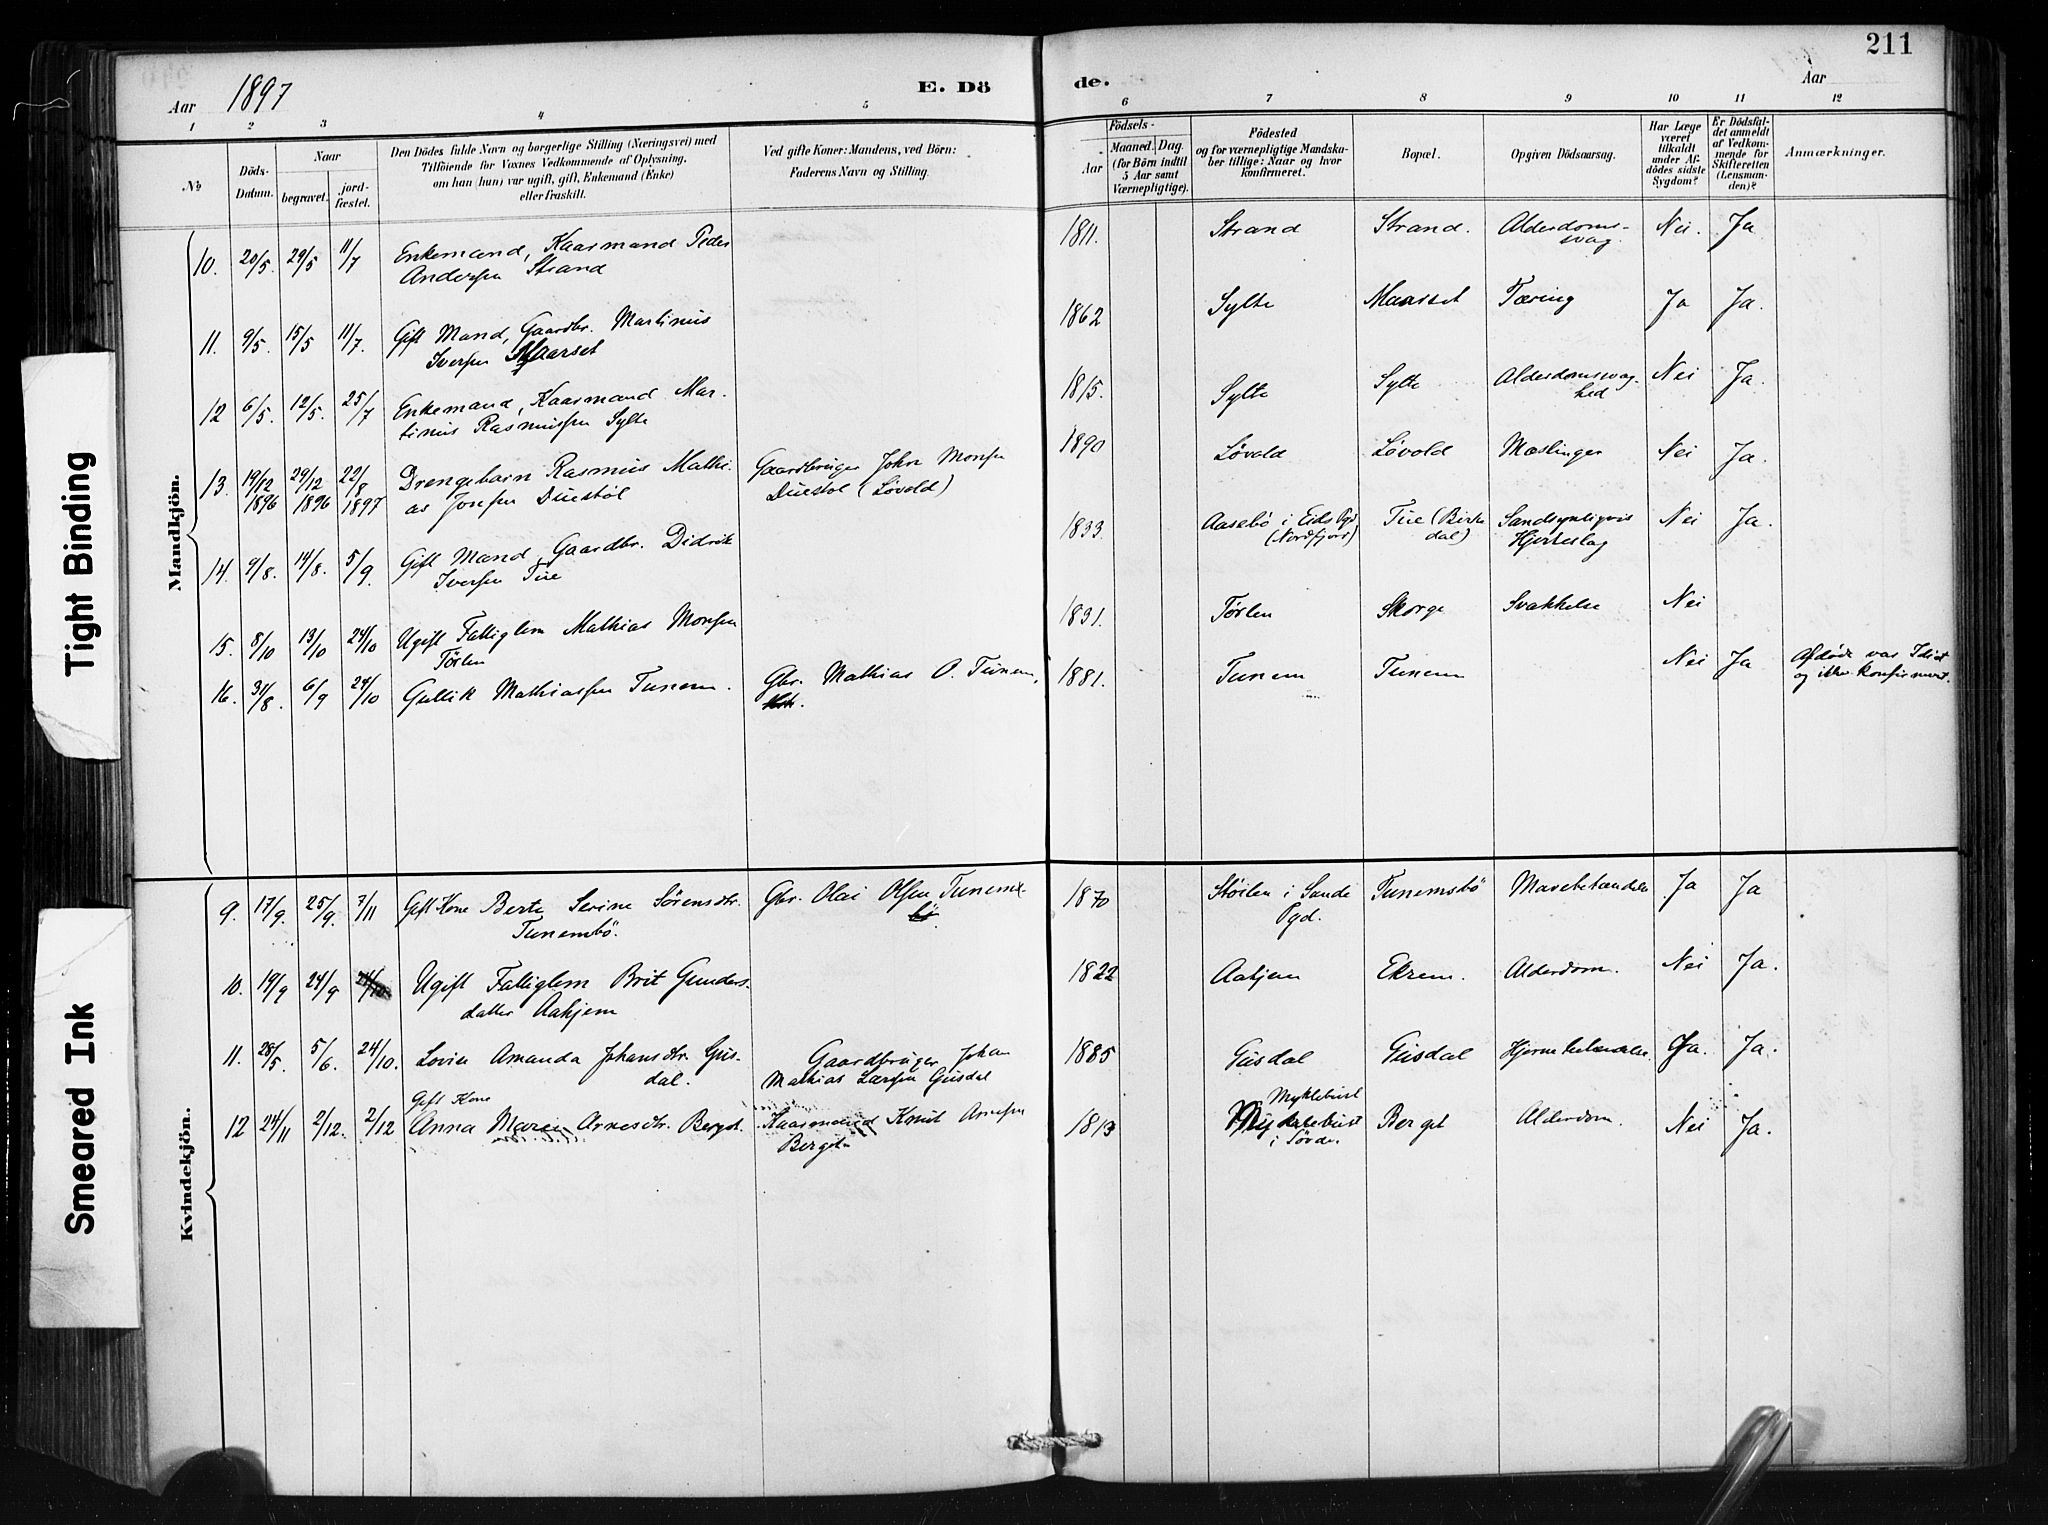 211
Aar 1897
E. Dö
de.
Aar
1 2 3 4 5 6 7 8 9 10 11 12
№
Döds-
Datum.
Naar
begravet.
jord-
fæstet.
Den Dödes fulde Navn og borgerlige Stilling (Næringsvei) med
Tilföiende for Voxnes Vedkommende af Oplysning,
om han (hun) var ugift, gift, Enkemand (Enke)
eller fraskilt.
Ved gifte Koner: Mandens, ved Börn:
Faderens Navn og Stilling.
Födsels-
Aar
Maaned. Dag.
(for Börn indtil
5 Aar samt
Værnepligtige).
Födested
og for værnepligtige Mandska-
ber tillige: Naar og hvor
konfirmeret.
Bopæl.
Opgiven Dödsaarsag.
Har Læge
været
tilkaldt
under Af-
dödes sidste
Sygdom?
Er Dödsfal-
det anmeldt
af Vedkom-
mende for
Skifteretten
(Lensman-
den)?
Anmærkninger.
Mandkjön.
10. 20/5. 29/5 11/7 Enkemand, Kaarmand Peder
Andersen Strand
1811. Strand Strand. Alderdoms-
svag. Nei. Ja
11. 9/5. 15/5 11/7. Gift Mand, Gaardbr. Martinus
Iversen Maarset
1862 Sylte Maarset Tæring Ja Ja.
12 6/5. 12/5. 25/7 Enkemand, Kaarmand Mar-
tinus Rasmussen Sylte
1815. Sylte Sylte Alderdomssvag-
hed Nei Ja.
13. 19/12 1896 29/12 1896 22/8 1897 Drengebarn Rasmus Mathi-
as Jonsen Duestöl
Gaardbruger John Monsen
Duestol (Løvold)
1890 Løvold Løvold Mæslinger Nei Ja.
14. 9/8. 14/8. 5/9. Gift Mand, Gaardbr. Didrik
Iversen Tue
1833. Aasebö i Eids Pgd
(Nordfjord) Tue (Birke
dal) Sandsynligvis
Hjerteslag Nei Ja.
15. 8/10 13/10 24/10 Ugift Fattiglem Mathias Monsen
Tørlen
1831. Tørlen Skorge Svakkelse Nei
16. 31/8. 6/9 24/10 Gullik Mathiassen Tunem.
Gbr. Mathias O. Tunem,
1881. Tunem Tunem Nei Ja Afdøde var Idiot
og ikke konfirmert.
Kvindekjön.
9. 17/9. 25/9. 7/11 Gift Kone Berte Serine Sörensdtr.
Tunemsbö.
Gbr. Olai Olsen Tunems-
bö.
1870 Störlen i Sande
Pgd. Tunemsbö Mavebetændelse Ja Ja
10. 19/9 24/9 24/10 Ugift Fattiglem Brit Gunders-
datter Aahjem
1822 Aahjem Ekrem. Alderdom. Nei Ja.
11. 28/5. 5/6. 24/10. Lovise Amanda Johansdtr. Gus-
dal.
Gaardbruger Johan
Mathias Larsen Gusdal
1885 Gusdal Gusdal Hjernebetændelse. Ja. Ja.
12 24/11 2/12. 2/12 Gift Kone
Anna Maria Arnesdtr. Berget.
Kaarmand Knut Arnesen
Berget
1813 Myklebust
Myklebust
i Sövde. Berget Alderdom. Nei Ja.
Tight Binding
Smeared Ink